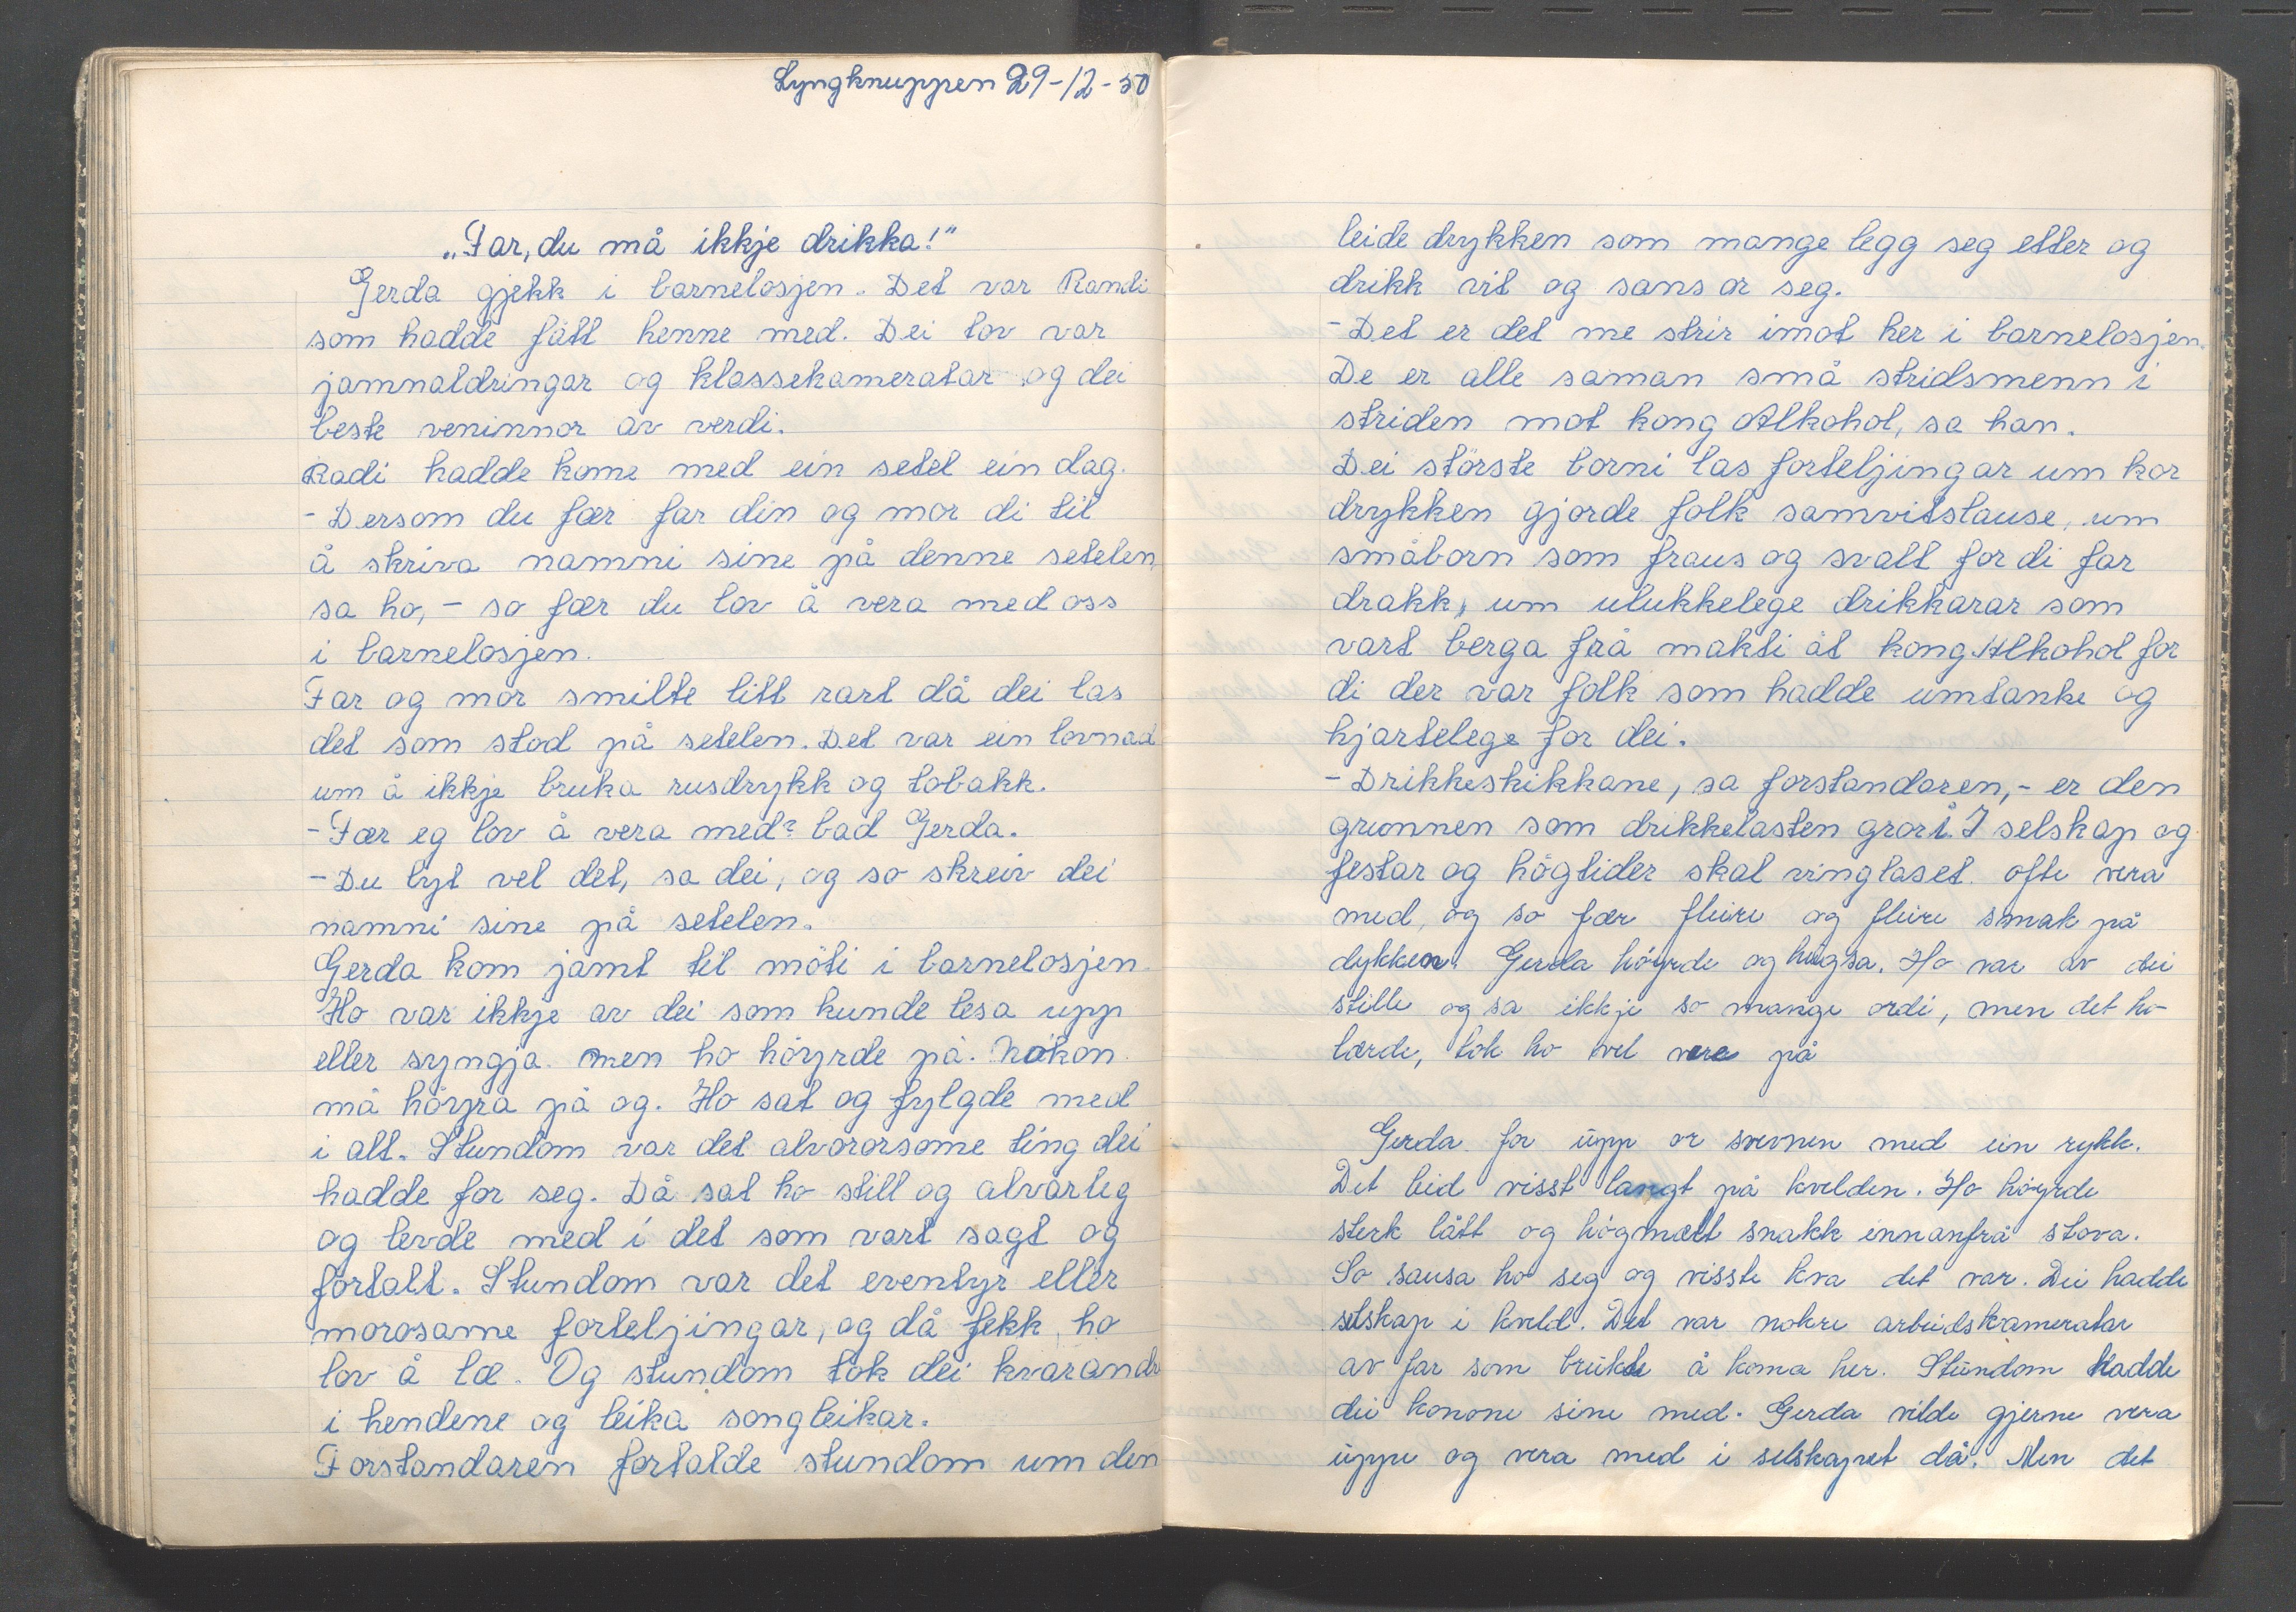 Lyngknuppen 29-12-50
„Far, du må ikkje drikka!"
Gerda gjekk i barnelosjen. Det var Randi
som hadde fått henne med. Dei tov var
jamnaldringar og klassekameratar og dei
beste veninnor av verdi.
Radi hadde kome med ein setel ein dag.
- Dersom du fær far din og mor di til
å skriva namni sine på denne setelen,
sa ho, - so fær du lov å vera med oss
i barnelosjen.
Far og mor smilte litt rart då dei las
det som stod på setelen. Det var ein lovnad
um å ikkje bruka rusdrykk og tobakk.
- Fær eg lov å vera med? bad Gerda.
- Du lyt vel det, sa dei, og so skreiv dei
namni sine på setelen.
Gerda kom jamt til möti i barnelosjen.
Ho var ikkje av dei som kunde lesa upp
eller syngja. men ho höyrde på. Nokon
må höyra på og. Ho sat og fylgde med
i alt. Stundom var det alvororsome ting dei
hadde for seg. Då sat ho still og alvarleg
og levde med i det som vart sagt og
fortalt. Stundom var det eventyr eller
morosame forteljingar, og då fekk ho
lov å læ. Og stundom tok dei kvarandr
i hendene og leika songleikar.
Forstandaren fortalde stundom um den
leide drykken som mange legg seg etter og
drikk vit og sans or seg.
- Det er det me strir imot her i barnelosjen.
De er alle saman små stridsmenn i
striden mot kong Alkohol, sa han.
Dei störste borni las forteljingar um kor
drykken gjorde folk samvitslause, um
småborn som fraus og svalt for di far
drakk, um ulukkelege drikkarar som
vart berga frå makti åt kong Alkohol for
di der var folk som hadde umtanke og
hjartelege for dei.
- Drikkeskikkane, sa forstandaren, - er den
grunnen som drikkelasten gror i. I selskap og
festar og högtider skal vinglaset ofte vera
med, og so fær fleire og fleire smak på
dykken. Gerda höyrde og hugsa. Ho var av dei
stille og sa ikkje so mange ordi, men det ho
lærde, tok ho vel vare på
Gerda for upp or svevnen med ein rykk.
Det leid visst langt på kvelden. Ho höyrde
sterk lått og högmælt snakk innanfrå stova.
So sansa ho seg og visste kva det var. Dei hadde
selskap i kveld. Det var nokre arbeidskameratar
av far som brukte å koma her. Stundom hadde
dei konone sine med. Gerda vilde gjerne vera
uppe og vera med i selskapet då. Men det